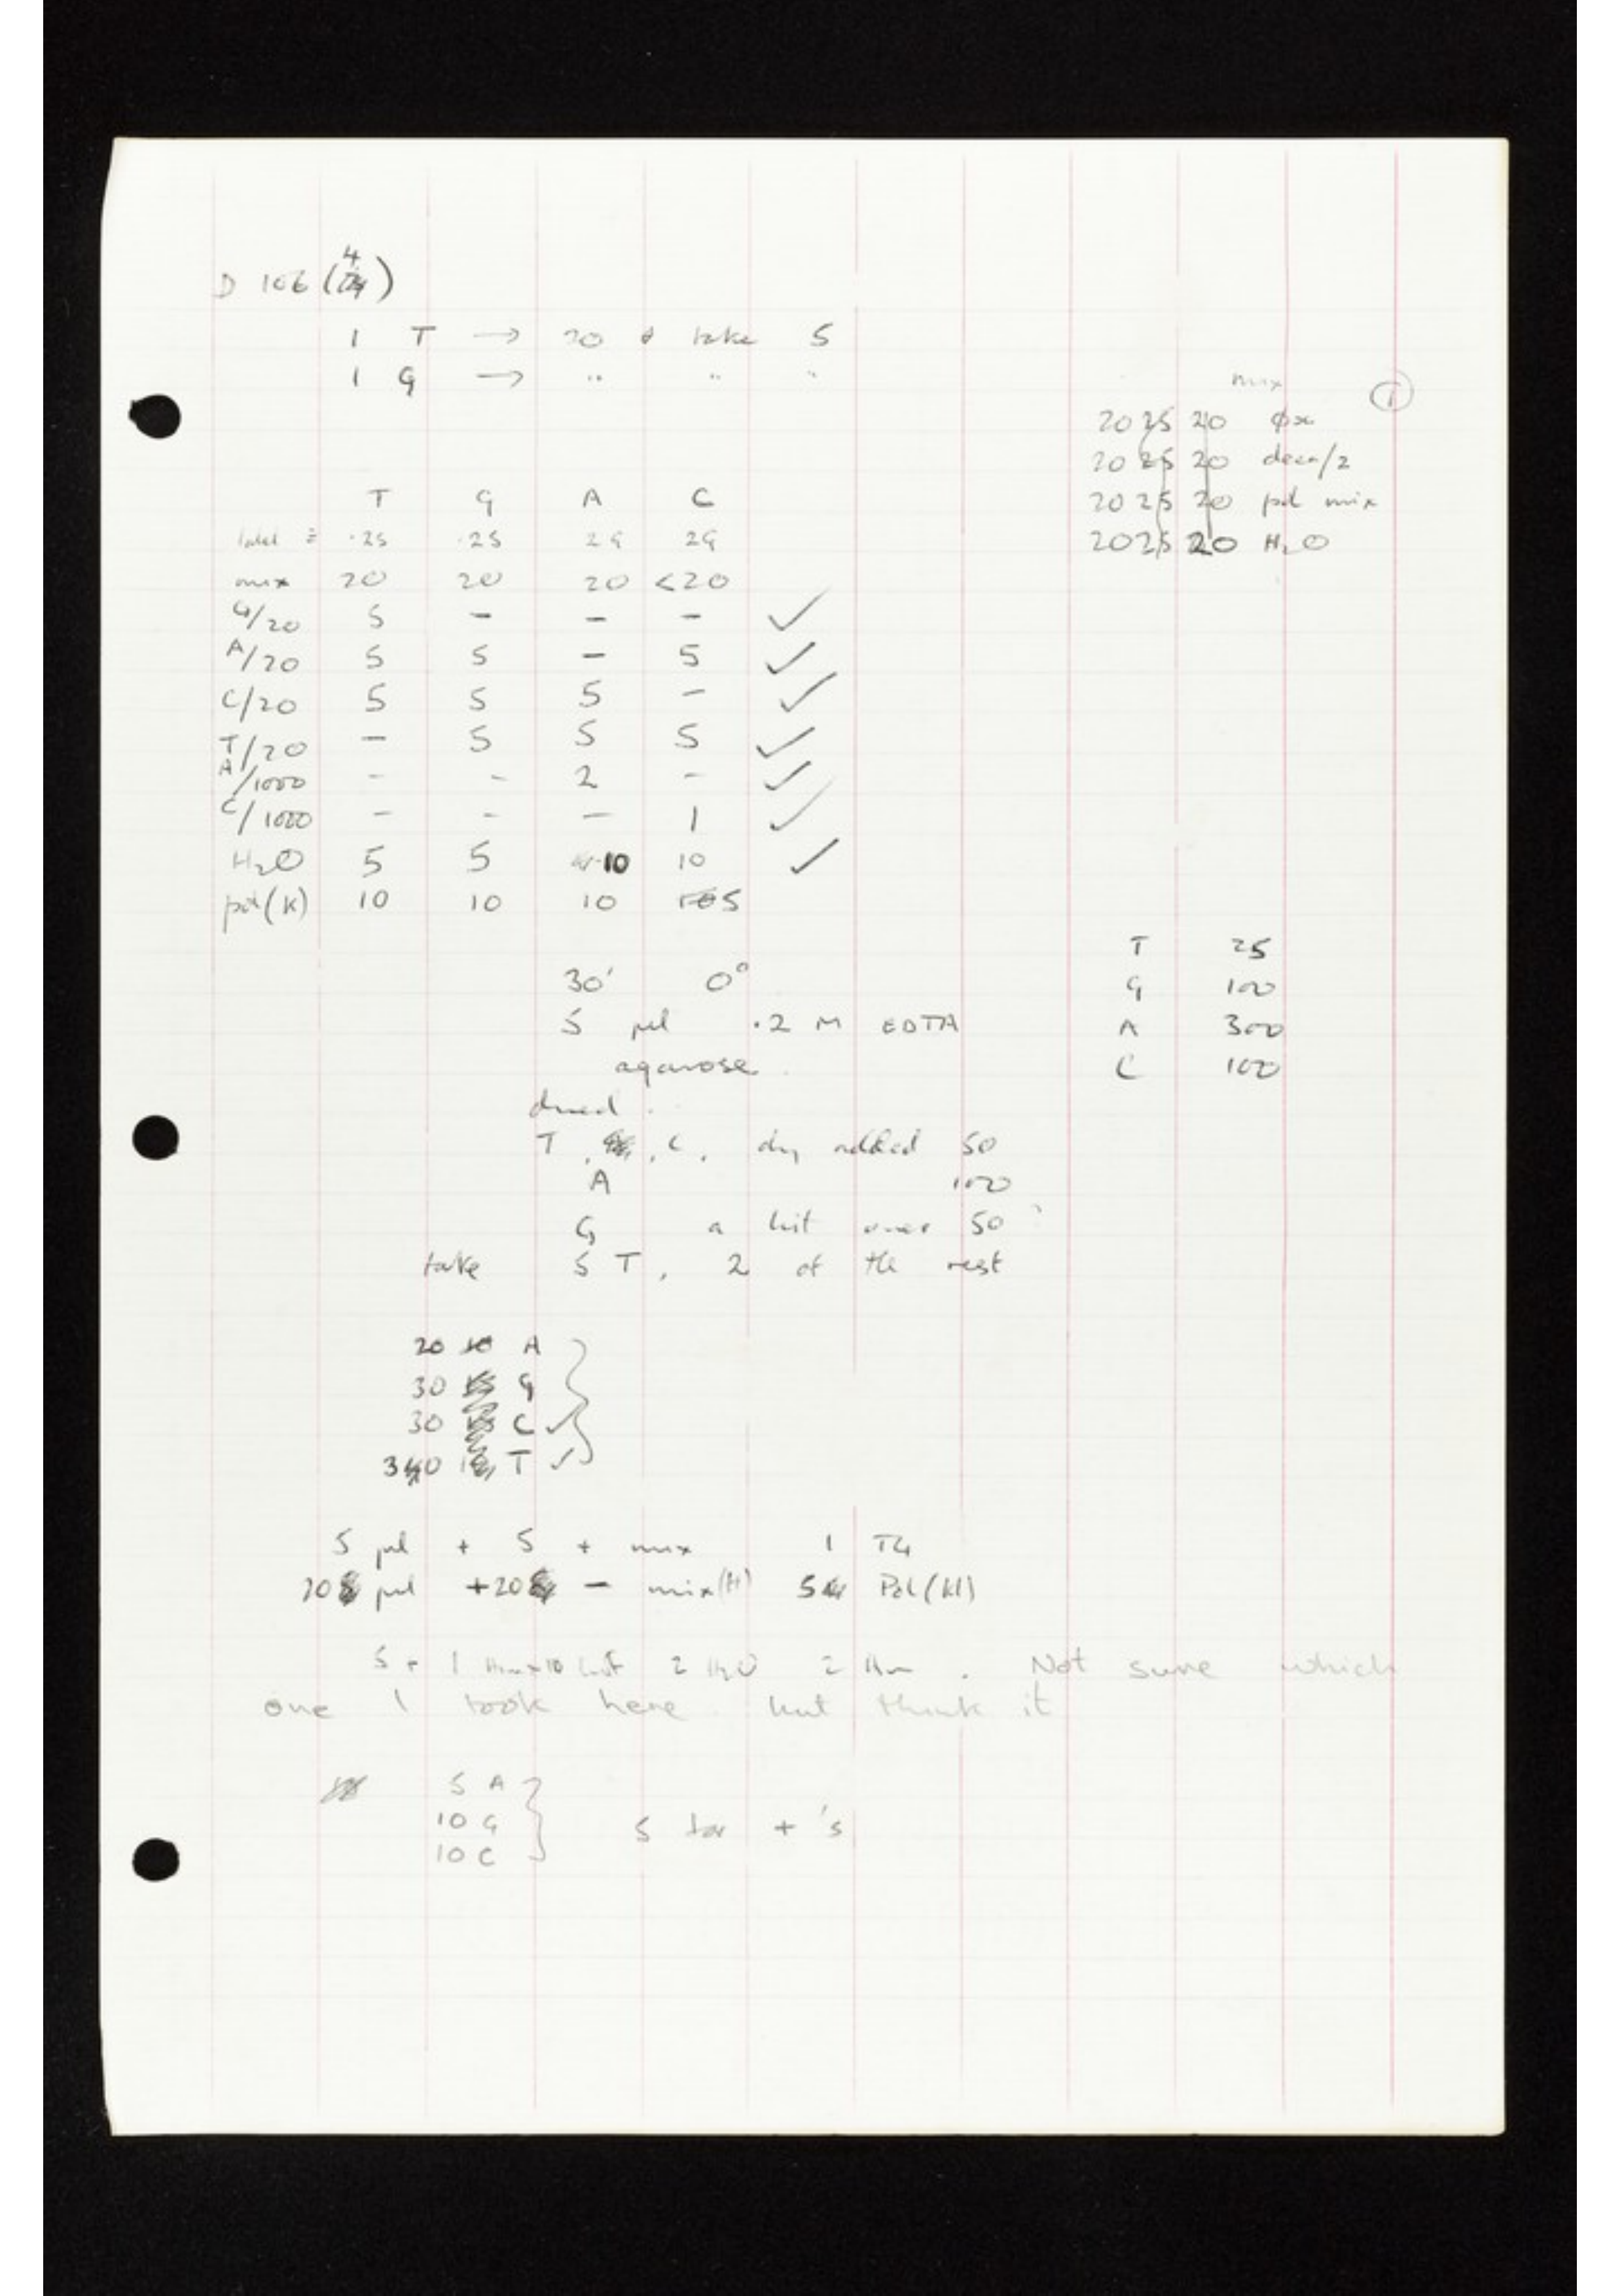 D 106 (4)
1 T → 20 & take 5
1 G → " " "
mix ①
20 25 20 φx
20 25 20 deca/2
20 25 20 pol mix
20 25 20 H2O
T G A C
label = .25 .25 25 25
mix 20 20 20 <20
G/20 5 - - - ✓
A/20 5 5 - 5 ✓
C/20 5 5 5 - ✓
T/20 - 5 5 5 ✓
A/1000 - - 2 - ✓
C/1000 - - - 1 ✓
H2O 5 5 10 10 ✓
pol(K) 10 10 10 5
T 25
G 100
A 300
C 100
30' 0°
5 µl .2 M EDTA
agarose.
dried.
T, C, dry added 50
A 100
G a bit over 50
take 5 T, 2 of the rest
20 10 A
30 G
30 C ✓
30 T ✓
5 µl + 5 + mix 1 T4
20 µl + 20 - mix(H) 5 Pol(Kl)
5 + 1 2 H2O 2 . Not sure which
one I took here but think it
5 A
10 G
10 C
5 for + 's